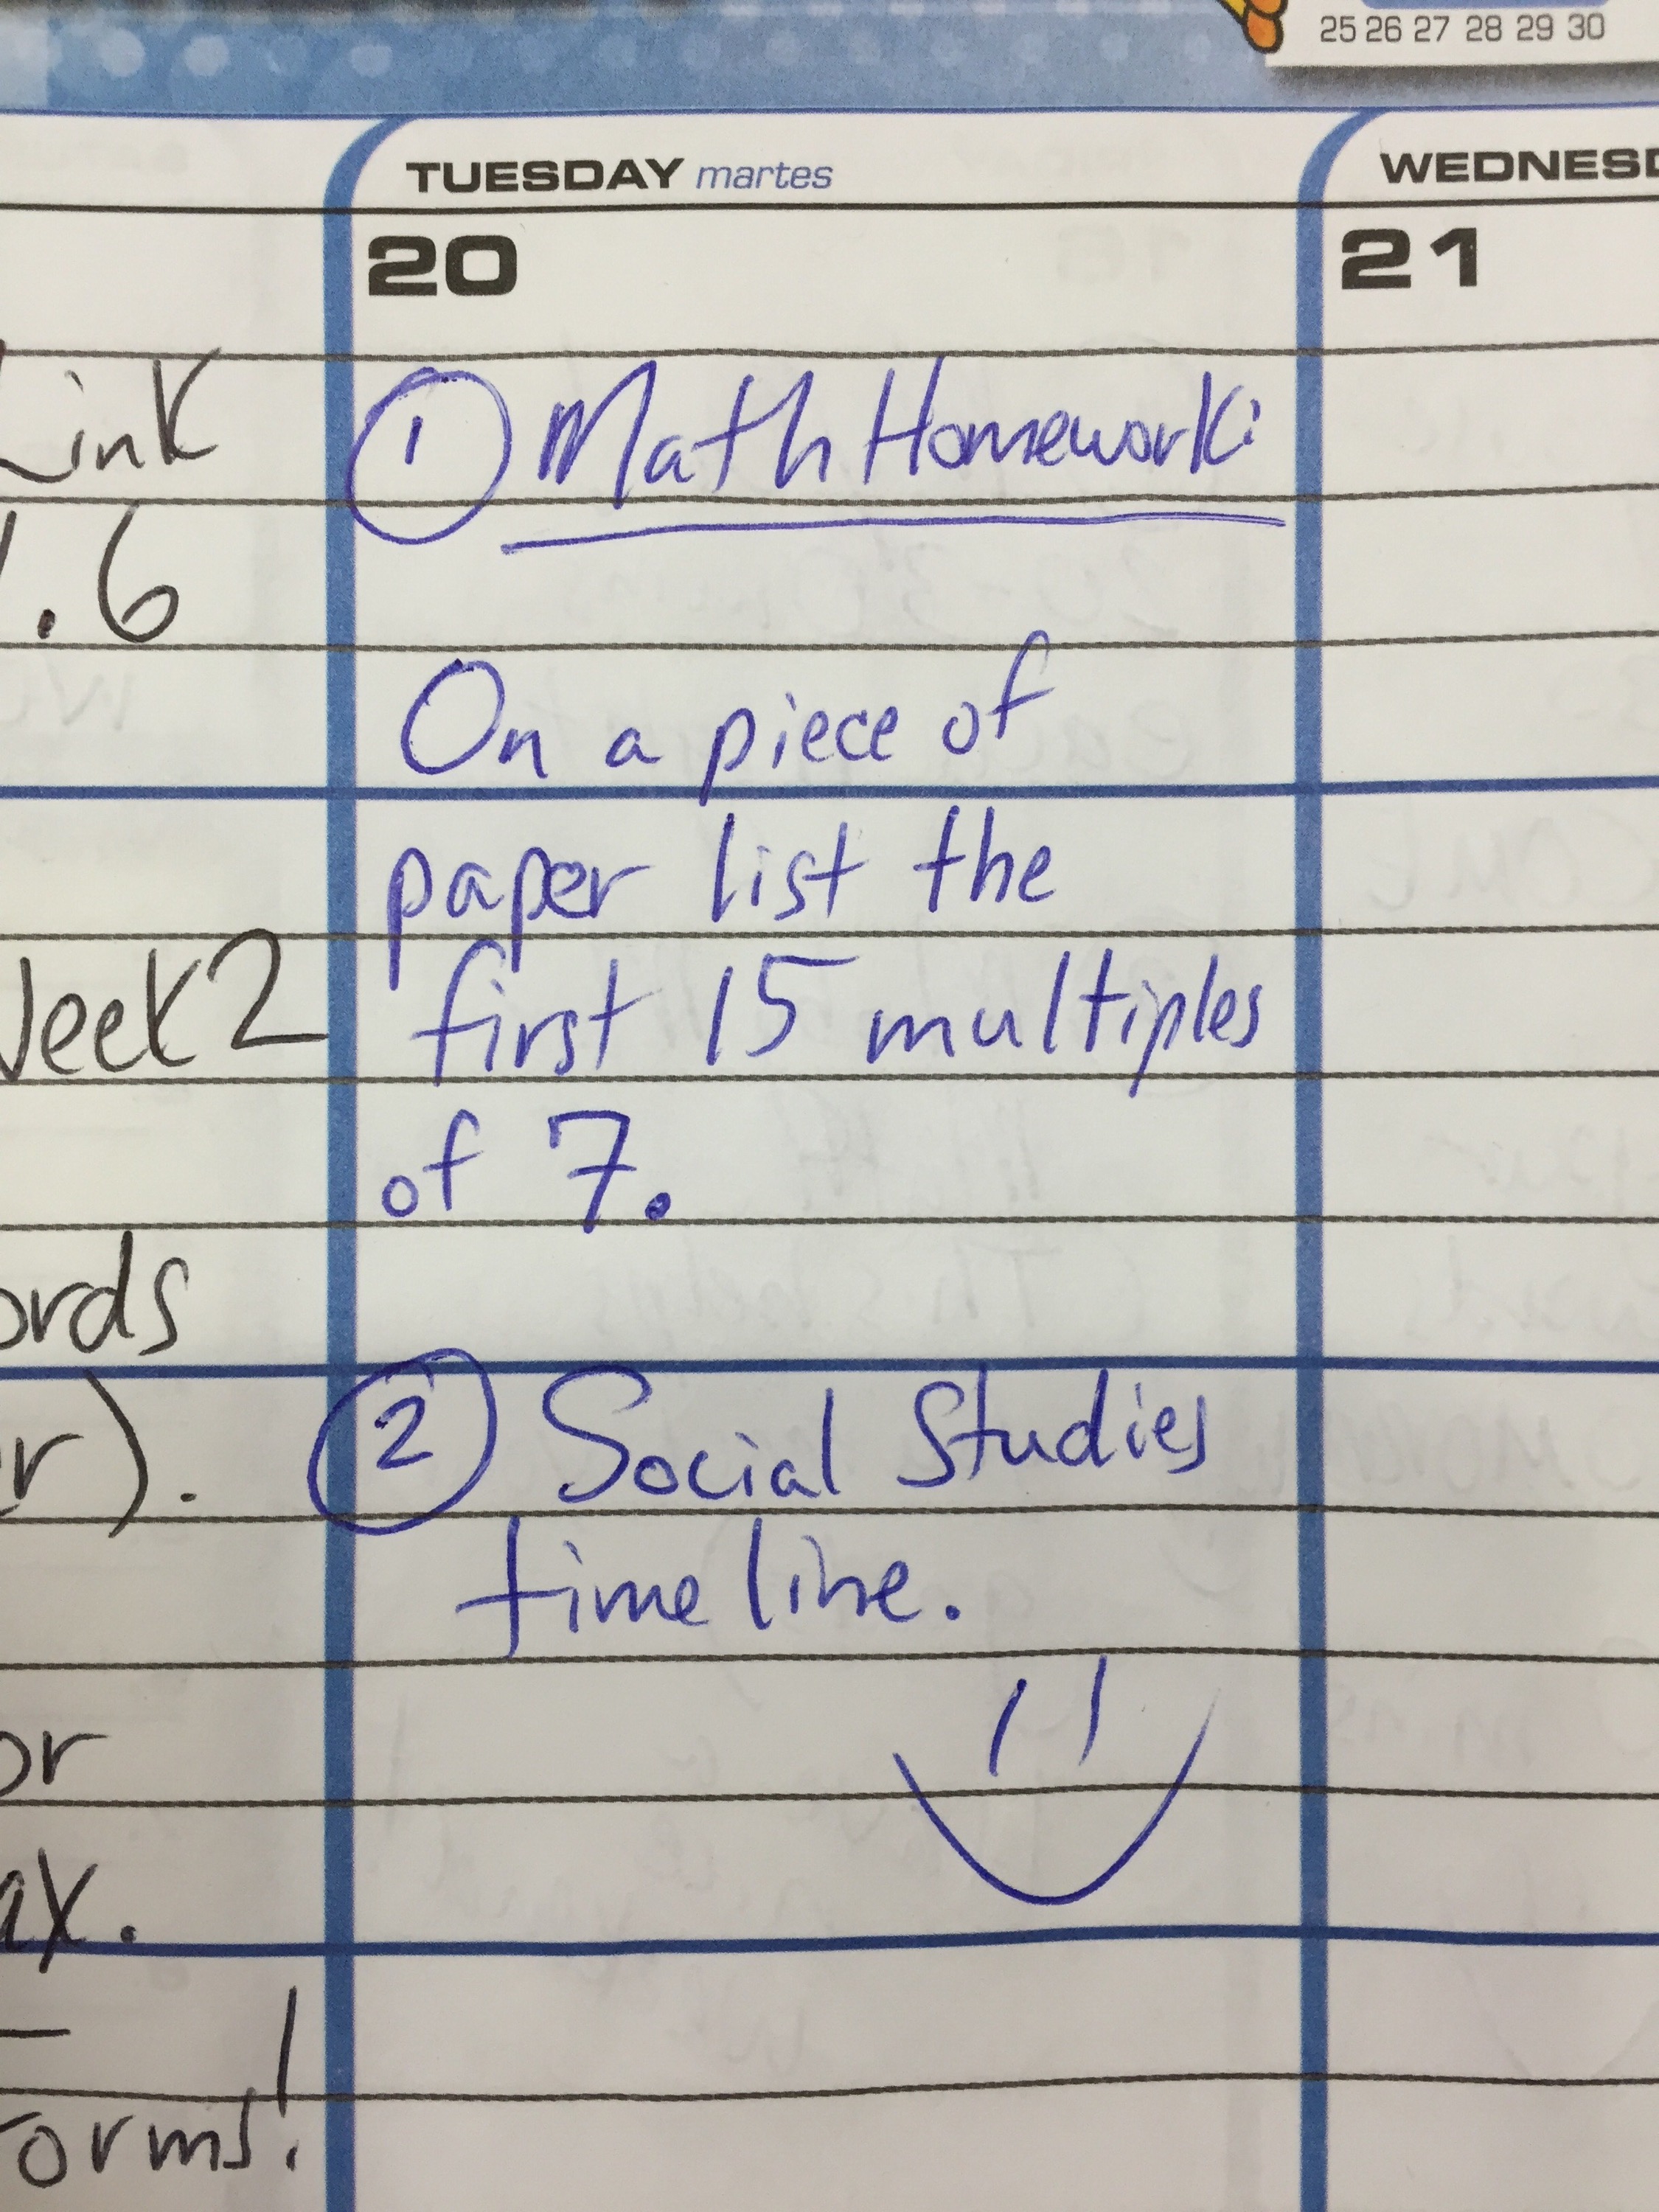 25 26 27 28 29 30
TUESDAY martes
WEDNESD
20
21
Link
.6
Week 2
ords
er).
or
ax.
orms!
① Math Homework:
On a piece of
paper list the
first 15 multiples
of 7.
② Social Studies
timeline.